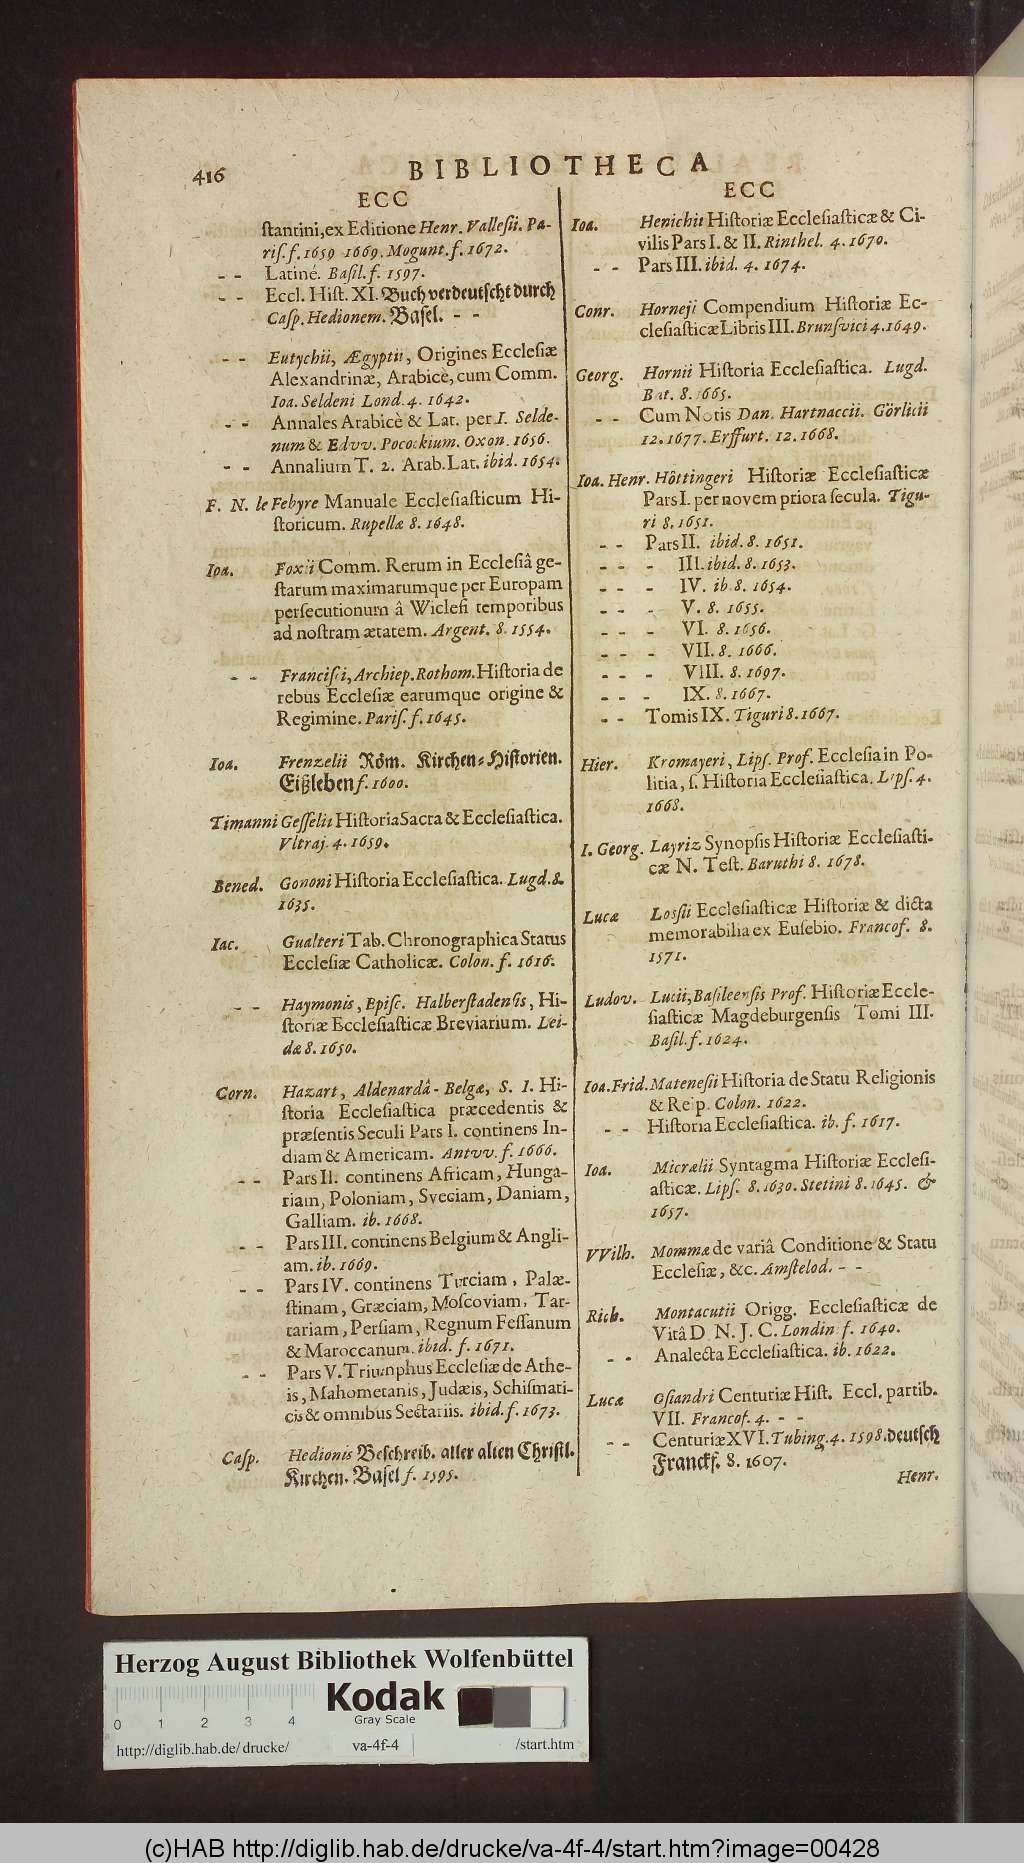 416
BIBLIOTHECA
ECC
ſtantini, ex Editione Henr. Valleſii. Pa-
riſ. f. 1659 1669. Mogunt. f. 1672.
- - Latinè. Baſil. f. 1597.
- - Eccl. Hiſt. XI. Buch verdeutſcht durch
Caſp. Hedionem. Baſel. - -
- - Eutychii, Ægyptii, Origines Eccleſiæ
Alexandrinæ, Arabicè, cum Comm.
Ioa. Seldeni Lond. 4. 1642.
- - Annales Arabicè & Lat. per I. Selde-
num & Edvv. Pocockium. Oxon. 1656.
- - Annalium T. 2. Arab. Lat. ibid. 1654.
F. N. le Febyre Manuale Eccleſiaſticum Hi-
ſtoricum. Rupellæ 8. 1648.
Ioa. Foxii Comm. Rerum in Eccleſiâ ge-
ſtarum maximarumque per Europam
perſecutionum â Wiclefi temporibus
ad noſtram ætatem. Argent. 8. 1554.
- - Franciſci, Archiep. Rothom. Hiſtoria de
rebus Eccleſiæ earumque origine &
Regimine. Pariſ. f. 1645.
Ioa. Frenzelii Röm. Kirchen-Hiſtorien.
Eißleben f. 1600.
Timanni Geſſelii Hiſtoria Sacra & Eccleſiaſtica.
Vltraj. 4. 1659.
Bened. Gononi Hiſtoria Eccleſiaſtica. Lugd. 8.
1635.
Iac. Gualteri Tab. Chronographica Status
Eccleſiæ Catholicæ. Colon. f. 1616.
- - Haymonis, Epiſc. Halberſtadenſis, Hi-
ſtoriæ Eccleſiaſticæ Breviarium. Lei-
dæ 8. 1650.
Corn. Hazart, Aldenardâ-Belgæ, S. I. Hi-
ſtoria Eccleſiaſtica præcedentis &
præſentis Seculi Pars I. continens In-
diam & Americam. Antvv. f. 1666.
- - Pars II. continens Africam, Hunga-
riam, Poloniam, Sveciam, Daniam,
Galliam. ib. 1668.
- - Pars III. continens Belgium & Angli-
am. ib. 1669.
- - Pars IV. continens Turciam, Palæ-
ſtinam, Græciam, Moſcoviam, Tar-
tariam, Perſiam, Regnum Feſſanum
& Maroccanum. ibid. f. 1671.
- - Pars V. Triumphus Eccleſiæ de Athe-
is, Mahometanis, Judæis, Schiſmati-
cis & omnibus Sectariis. ibid. f. 1673.
Caſp. Hedionis Beſchreib. aller alten Chriſtl.
Kirchen. Baſel f. 1595.
ECC
Ioa. Henichii Hiſtoriæ Eccleſiaſticæ & Ci-
vilis Pars I. & II. Rinthel. 4. 1670.
- - Pars III. ibid. 4. 1674.
Conr. Horneji Compendium Hiſtoriæ Ec-
cleſiaſticæ Libris III. Brunſvici 4. 1649.
Georg. Hornii Hiſtoria Eccleſiaſtica. Lugd.
Bat. 8. 1665.
- - Cum Notis Dan. Hartnaccii. Görlicii
12. 1677. Erffurt. 12. 1668.
Ioa. Henr. Hôttingeri Hiſtoriæ Eccleſiaſticæ
Pars I. per novem priora ſecula. Tigu-
ri 8. 1651.
- - Pars II. ibid. 8. 1651.
- - - III. ibid. 8. 1653.
- - - IV. ib. 8. 1654.
- - - V. 8. 1655.
- - - VI. 8. 1656.
- - - VII. 8. 1666.
- - - VIII. 8. 1697.
- - - IX. 8. 1667.
- - Tomis IX. Tiguri 8. 1667.
Hier. Kromayeri, Lipſ. Prof. Eccleſia in Po-
litia, ſ. Hiſtoria Eccleſiaſtica. Lipſ. 4.
1668.
I. Georg. Layriz Synopſis Hiſtoriæ Eccleſiaſti-
cæ N. Teſt. Baruthi 8. 1678.
Lucæ Loſſii Eccleſiaſticæ Hiſtoriæ & dicta
memorabilia ex Euſebio. Francof. 8.
1571.
Ludov. Lucii, Baſileenſis Prof. Hiſtoriæ Eccle-
ſiaſticæ Magdeburgenſis Tomi III.
Baſil. f. 1624.
Ioa. Frid. Mateneſii Hiſtoria de Statu Religionis
& Reip. Colon. 1622.
- - Hiſtoria Eccleſiaſtica. ib. f. 1617.
Ioa. Micrælii Syntagma Hiſtoriæ Eccleſi-
aſticæ. Lipſ. 8. 1630. Stetini 8. 1645. &
1657.
VVilh. Mommæ de variâ Conditione & Statu
Eccleſiæ, &c. Amſtelod. - -
Rich. Montacutii Origg. Eccleſiaſticæ de
Vitâ D. N. J. C. Londin f. 1640.
- - Analecta Eccleſiaſtica. ib. 1622.
Lucæ Oſiandri Centuriæ Hiſt. Eccl. partib.
VII. Francof. 4. - -
- - Centuriæ XVI. Tubing. 4. 1598. deutſch
Franckf. 8. 1607.
Henr.
Herzog August Bibliothek Wolfenbüttel
Kodak
Gray Scale
0 1 2 3 4
http://diglib.hab.de/drucke/ va-4f-4 /start.htm
(c)HAB http://diglib.hab.de/drucke/va-4f-4/start.htm?image=00428